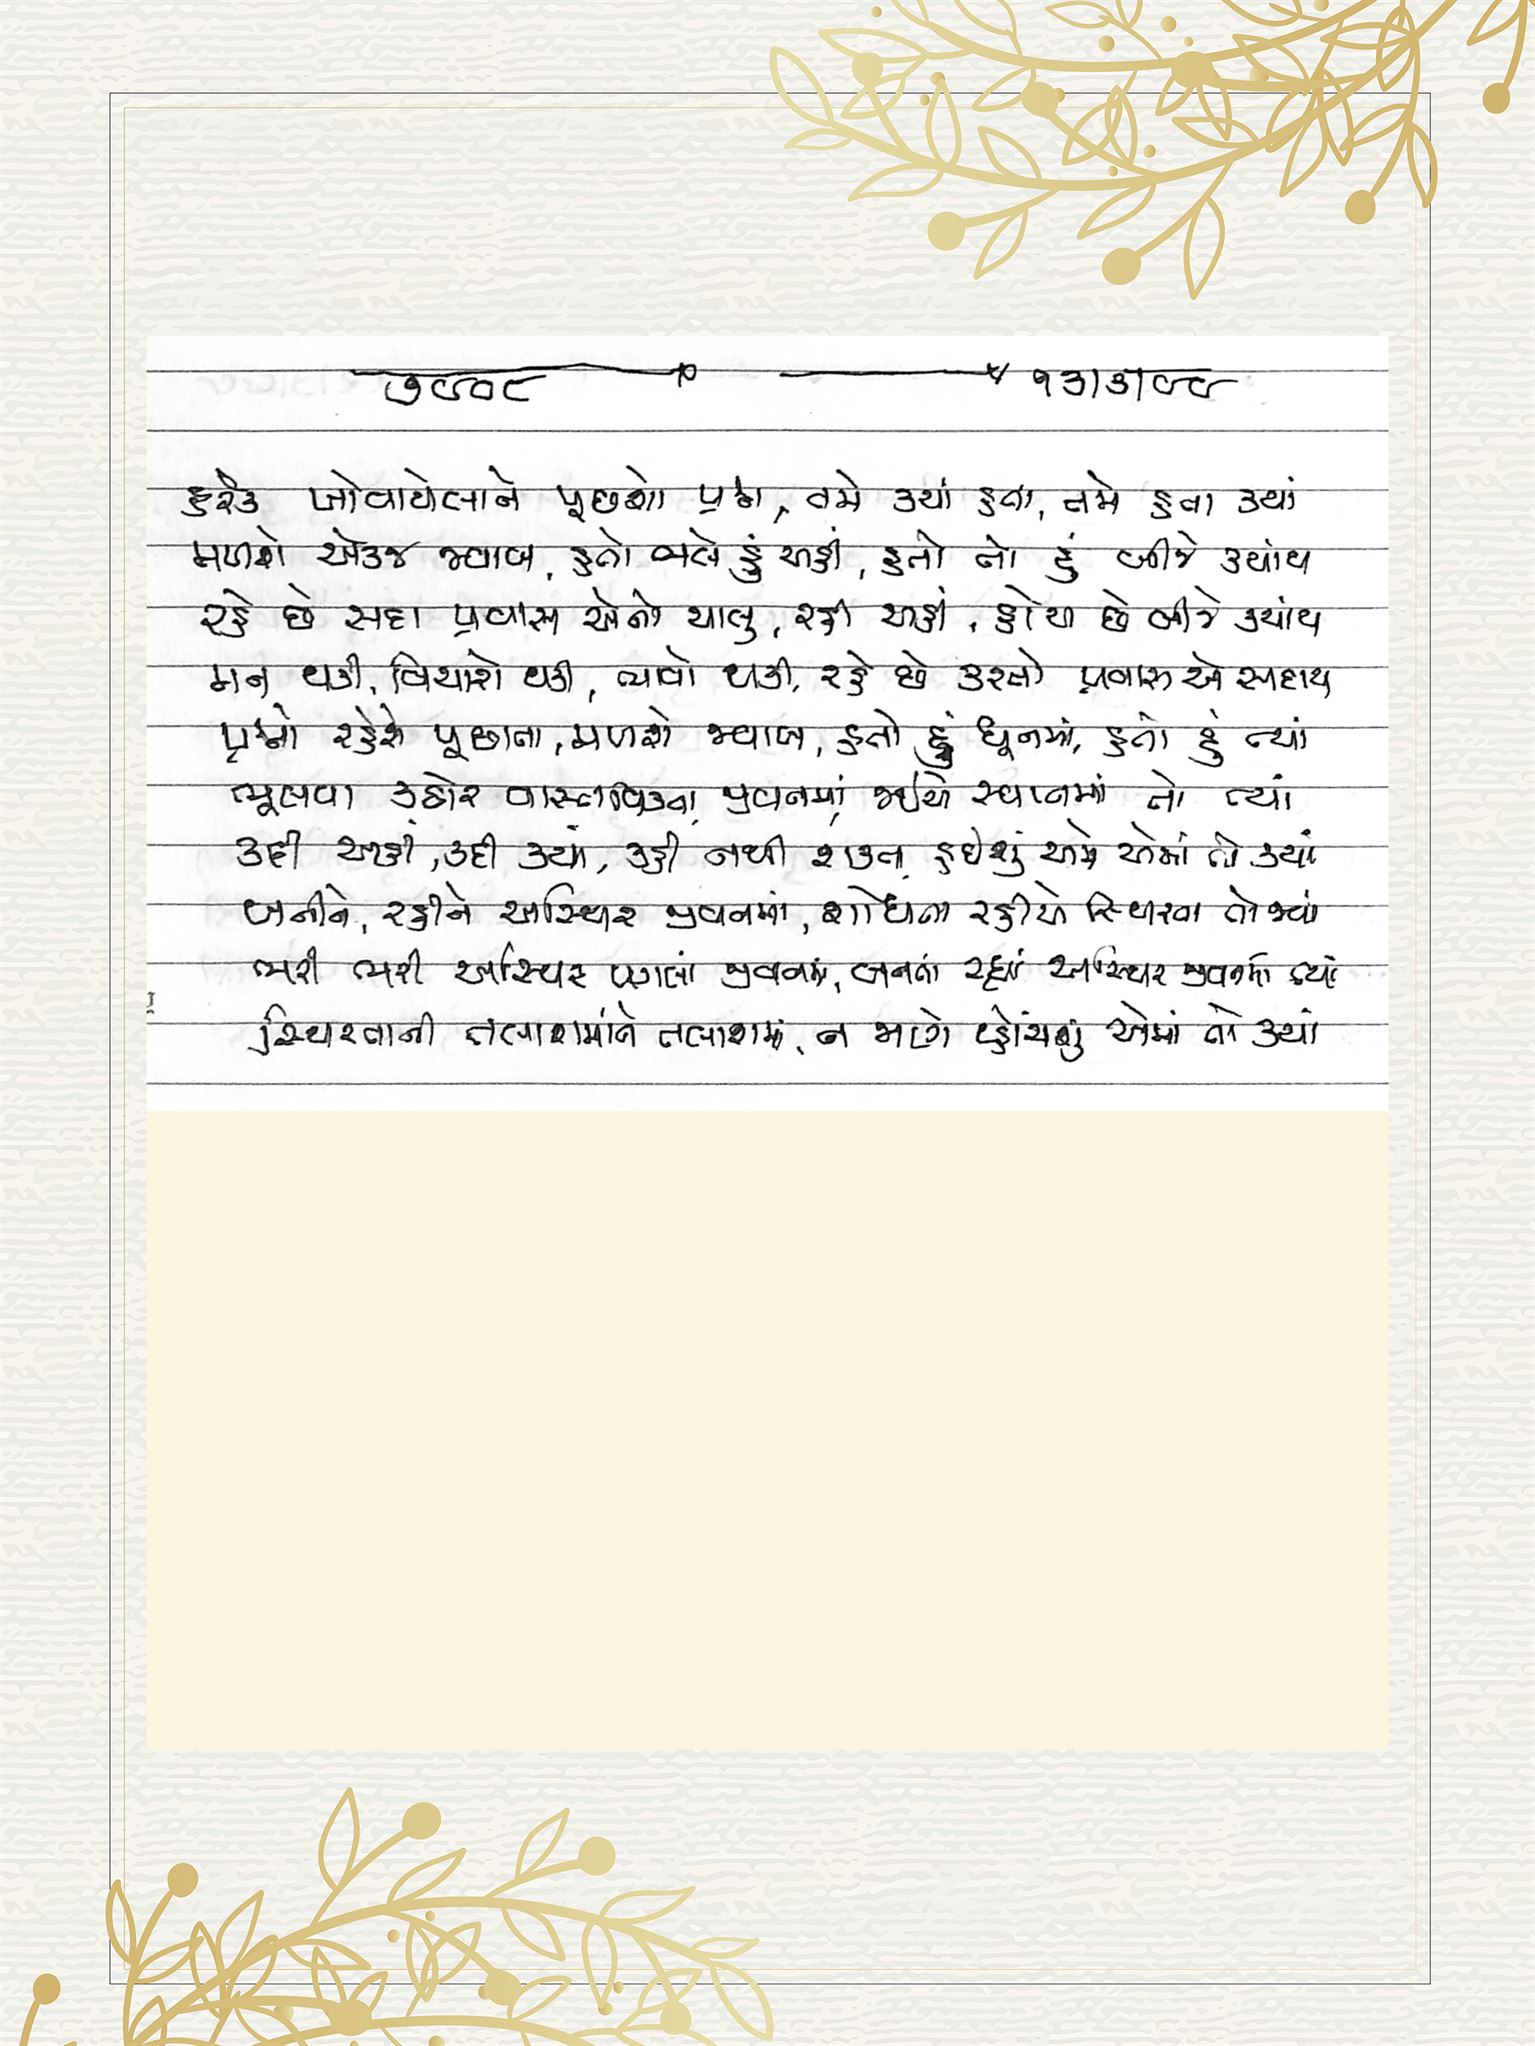 ૭૯૦૮ ૧૩/૩/૯૯
હરેક ખોવાયેલાને પૂછશો પ્રશ્ન, તમે ક્યાં હતા, તમે હતા ક્યાં
મળશે એકજ જવાબ, હતો ભલે હું અહીં, હતો તો હું બીજે ક્યાંય
રહે છે સદા પ્રવાસ એનો ચાલુ, રહી અહીં, હોય છે બીજે ક્યાંય
મન થકી, વિચારો થકી, ભાવો થકી, રહે છે કરતો પ્રવાસ એ સદાય
પ્રશ્નો રહેશે પૂછાતા, મળશે જવાબ, હતો હું ધૂનમાં, હતો હું ત્યાં
ભૂલવા કઠોર વાસ્તવિકતા જીવનમાં, જઈએ સ્થાનમાં તો ત્યાં
કદી અહીં, કદી ક્યાં, કહી નથી શકતા, હઈશું અમે એમાં તો ક્યાં
બનીને, રહીને અસ્થિર જીવનમાં, શોધતા રહીએ સ્થિરતા તો જ્યાં
ભરી ભરી અસ્થિર પગલાં જીવનમાં, બનતાં રહ્યાં અસ્થિર જીવનમાં ત્યાં
સ્થિરતાની તલાશમાંને તલાશમાં, ન જાણે પહોંચશું એમાં તો ક્યાં